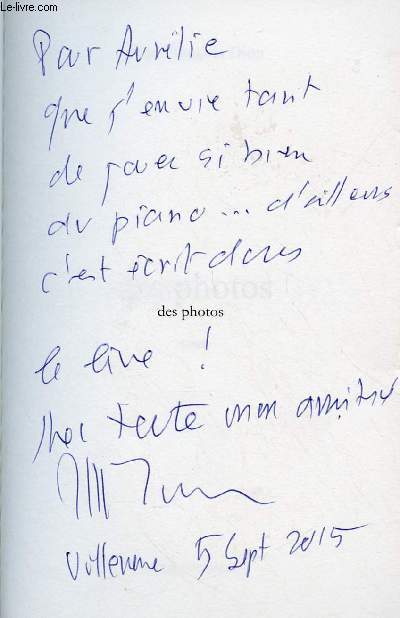 Le-livre.com
Pour Aurélie
que j'envie tant
de jouer si bien
du piano... d'ailleurs
c'est écrit dans
des photos
le livre !
toute mon amitié
5 Sept 2015